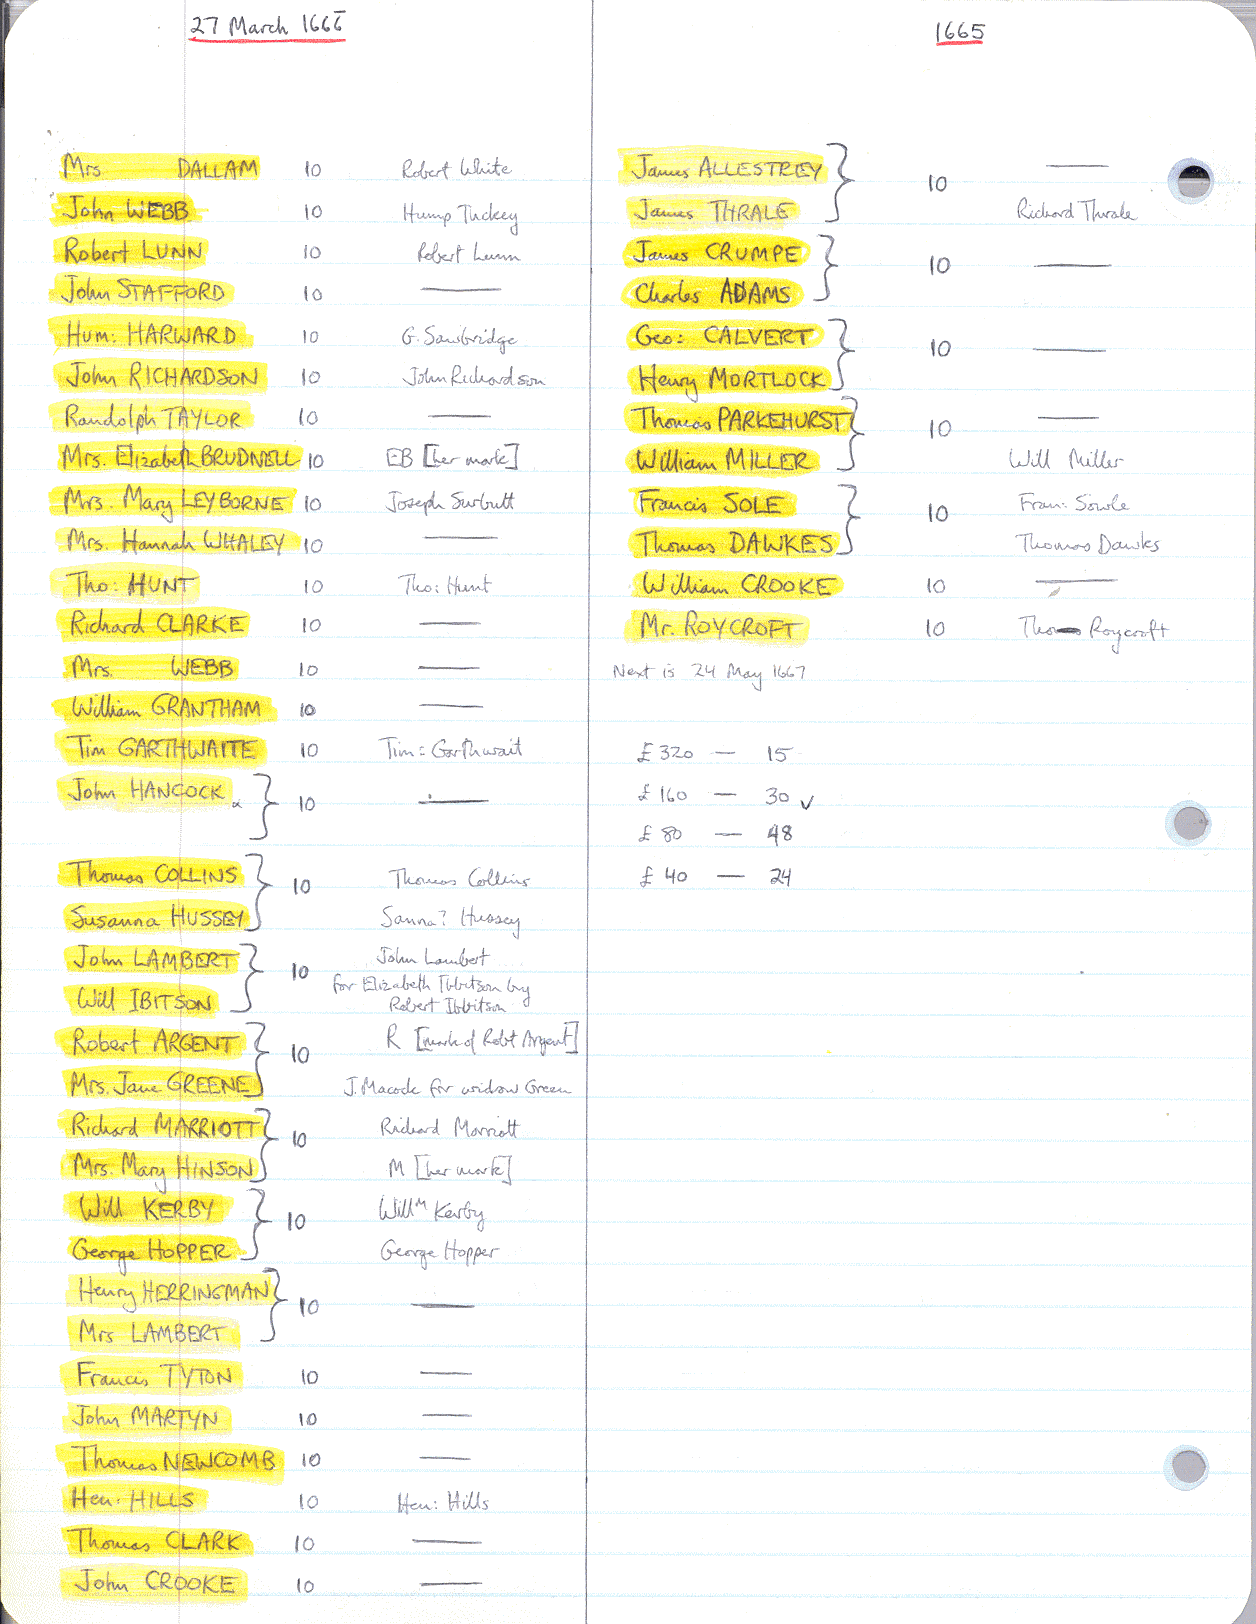 27 March 1666
Mrs DALLAM 10 Robert White
John WEBB 10 Hump Tuckey
Robert LUNN 10 Robert Lunn
John STAFFORD 10 —
Hum: HARWARD 10 G. Sawbridge
John RICHARDSON 10 John Richardson
Randolph TAYLOR 10 —
Mrs. Elizabeth BRUDNELL 10 EB [her mark]
Mrs. Mary LEYBORNE 10 Joseph Surbutt
Mrs. Hannah WHALEY 10 —
Tho: HUNT 10 Tho: Hunt
Richard CLARKE 10 —
Mrs. WEBB 10 —
William GRANTHAM 10 —
Tim GARTHWAITE 10 Tim: Garthwait
John HANCOCK } 10 —
Thomas COLLINS } 10 Thomas Collins
Susanna HUSSEY Sanna? Hussey
John LAMBERT } 10 John Lambert
Will IBITSON for Elizabeth Ibbitson by
Robert Ibbitson
Robert ARGENT } 10 R [mark of Robt Argent]
Mrs. Jane GREENE J. Macock for widow Green
Richard MARRIOTT } 10 Richard Marriott
Mrs. Mary HINSON M [her mark]
Will KERBY } 10 Willm Kerby
George HOPPER George Hopper
Henry HERRINGMAN } 10 —
Mrs LAMBERT
Francis TYTON 10 —
John MARTYN 10 —
Thomas NEWCOMB 10 —
Hen: HILLS 10 Hen: Hills
Thomas CLARK 10 —
John CROOKE 10 —
1665
James ALLESTREY } 10 —
James THRALE Richard Thrale
James CRUMPE } 10 —
Charles ADAMS
Geo: CALVERT } 10 —
Henry MORTLOCK
Thomas PARKEHURST } 10 —
William MILLER Will Miller
Francis SOLE } 10 Fran: Sowle
Thomas DAWKES Thomas Dawks
William CROOKE 10 —
Mr. ROYCROFT 10 Tho Roycroft
Next is 24 May 1667
£320 — 15
£160 — 30 ✓
£80 — 48
£40 — 24